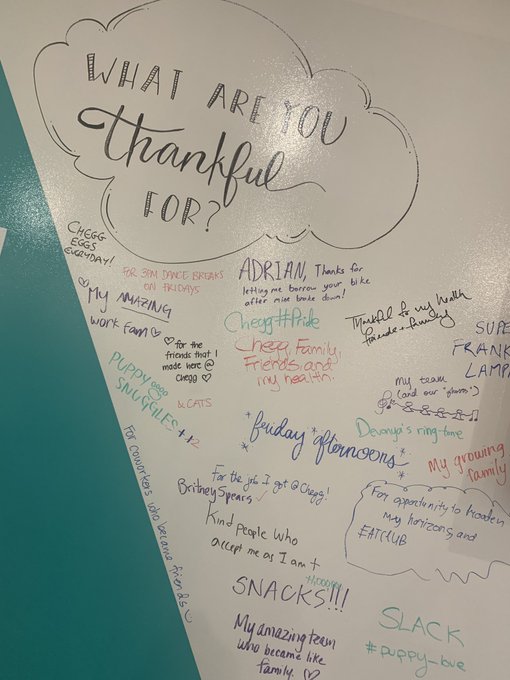 WHAT ARE YOU
thankful
FOR?
CHEGG
EGGS
EVERYDAY!
FOR 3PM DANCE BREAKS
ON FRIDAYS
ADRIAN, Thanks for
letting me borrow your bike
after mine broke down!
My AMAZING
work Fam
Chegg #Pride
Thankful for my health
friends + family
for the
friends that I
made here @
Chegg
Chegg, Family,
Friends, and
my health.
SUPE
FRANK
LAMPA
PUPPY
SNUGGLES
& CATS
my team
(and our "ghosts")
Devonya's ring-tone
*friday afternoons*
My growing
family
For coworkers who became friends
For the job I got @ Chegg!
Britney Spears
For opportunity to broaden
my horizons, and
EATCLUB
Kind people who
accept me as I am +
SNACKS!!!
My amazing team
who became like
family.
SLACK
#puppy_love